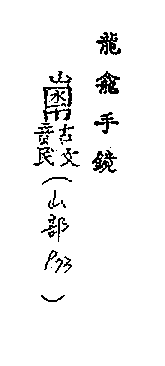 龍龕手鏡
古文
音民
(山部 P73)